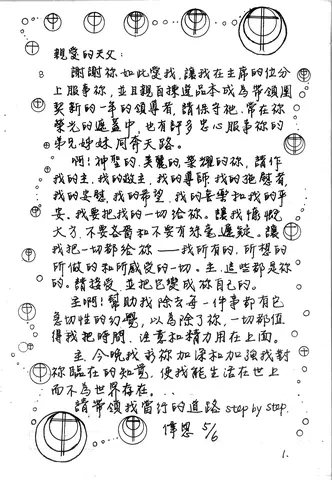 親愛的天父:
謝謝祢如此愛我,讓我在主席的位分
上服事祢,並且親自揀選品本成為帶領團
契新的一年的領導者,請保守祂,常在祢
榮光的遮蓋中,也有許多忠心服事祢的
弟兄姊妹同奔天路。
啊!神聖的,美麗的,榮耀的祢,請作
我的主,我的救主,我的導師,我的施慰者,
我的安慰,我的希望,我的喜樂和我的平
安。我要把我的一切給祢。讓我慷慨
大方,不要吝嗇和不要有絲毫遲疑。讓
我把一切都給祢——我所有的,所想的
所做的和所感受的一切。主,這些都是祢
的。請接受,並把它變成祢自己的。
主啊!幫助我除去每一件事都有它
急切性的幻覺,以為除了祢,一切都值
得我把時間、注意和精力用在上面。
主,今晚我求祢加深和加強我對
祢臨在的知覺,使我能生活在世上
而不為世界存在...
請帶領我當行的道路 step by step.
恩 5/6
1.